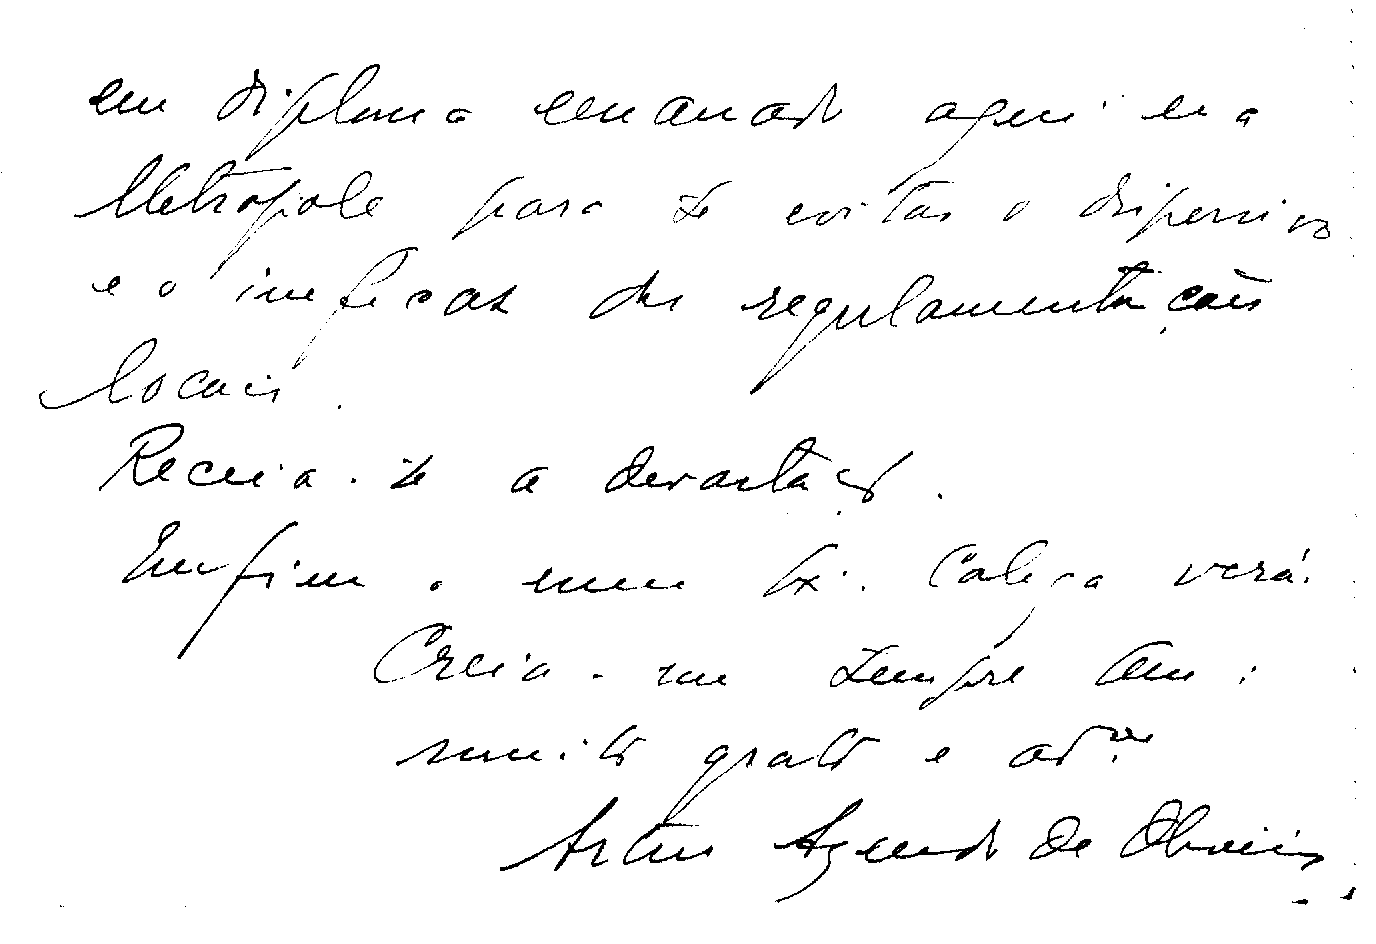 em diploma emanado aqui na
Metropole para se evitar o dispersivo
e o ineficaz das regulamentações
locais.
Receia-se a devastação.
Enfim o meu Ex. Colega verá.
Creia-me sempre
muito grato e ador
Artur Azevedo de Oliveira